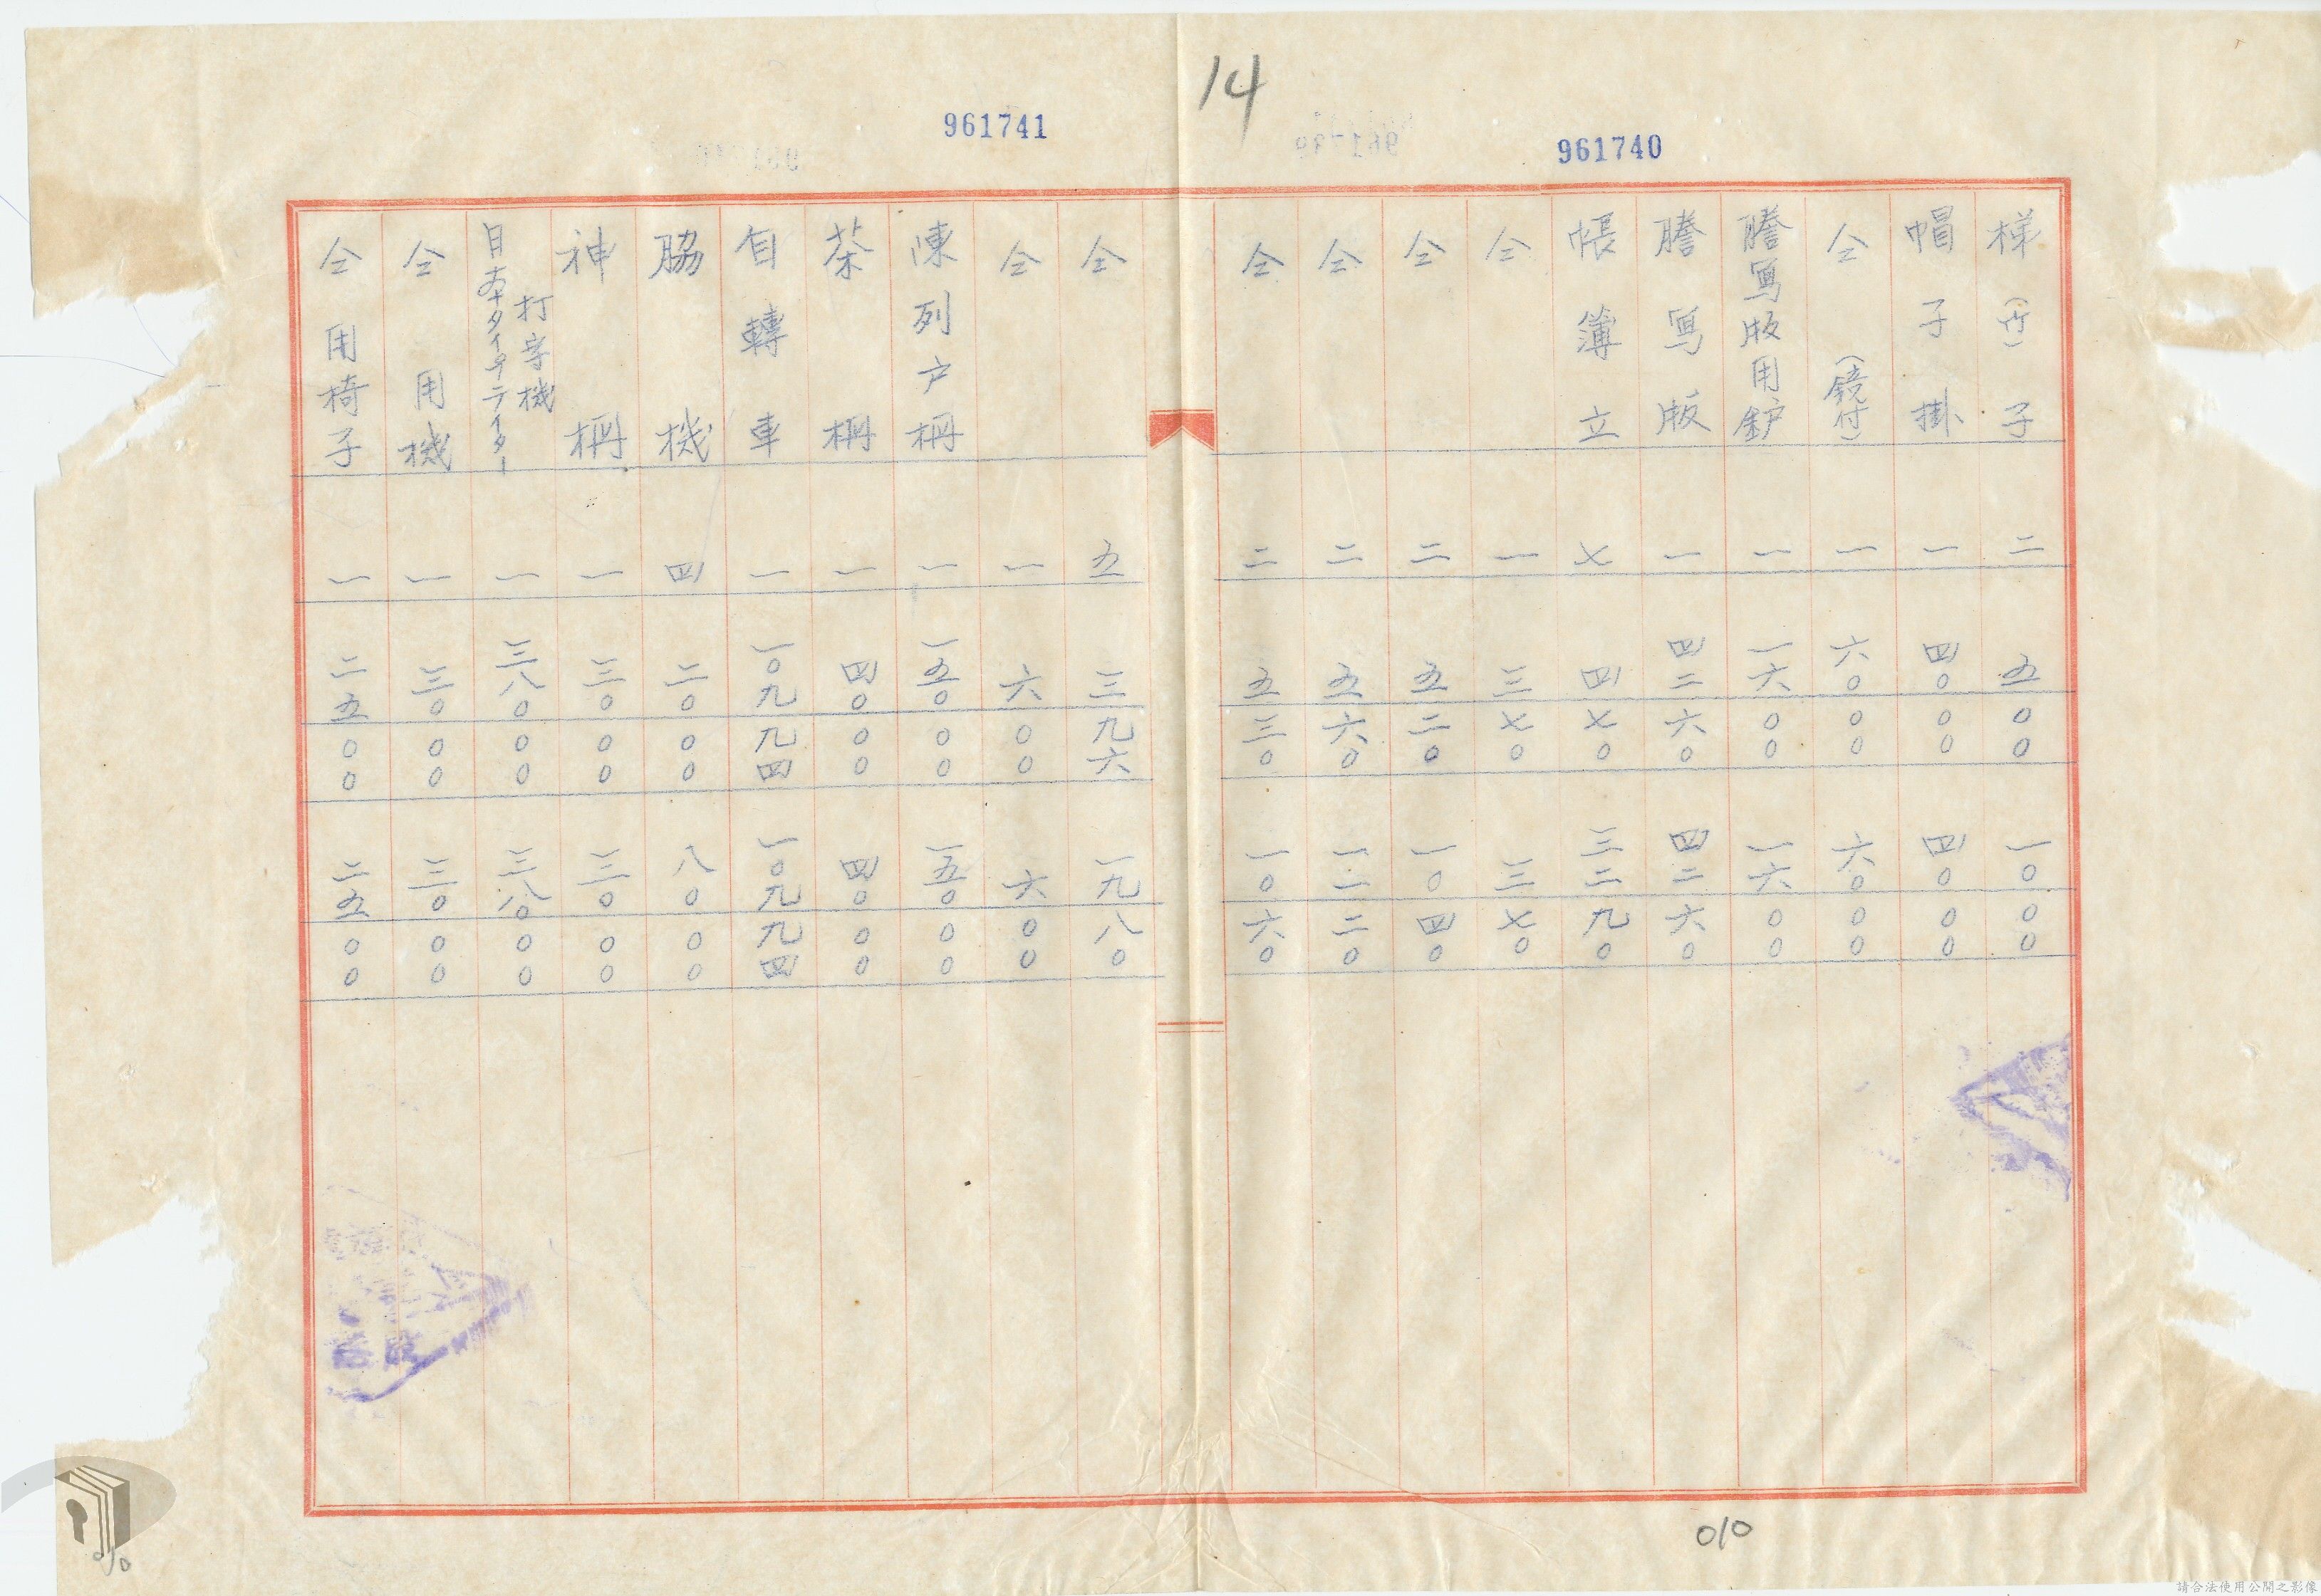 14
961740
961741
梯子(竹) 二 五〇〇 一〇〇〇
帽子掛 一 四〇〇〇 四〇〇〇
仝(鏡付) 一 六〇〇〇 六〇〇〇
謄寫版用鈩 一 一六〇〇 一六〇〇
謄寫版 一 四二六〇 四二六〇
帳簿立 七 四七〇 三二九〇
仝 一 三七〇 三七〇
仝 二 五二〇 一〇四〇
仝 二 五六〇 一一二〇
仝 二 五三〇 一〇六〇
仝 五 三九六 一九八〇
仝 一 六〇〇 六〇〇
陳列戸棚 一 一五〇〇〇 一五〇〇〇
茶棚 一 四〇〇〇 四〇〇〇
自轉車 一 一〇九九四 一〇九九四
脇機 四 二〇〇〇 八〇〇〇
神棚 一 三〇〇〇 三〇〇〇
打字機
タイプライター 一 三八〇〇〇 三八〇〇〇
仝用機 一 三〇〇〇 三〇〇〇
仝用椅子 一 二五〇〇 二五〇〇
010
請合法使用公開之影像